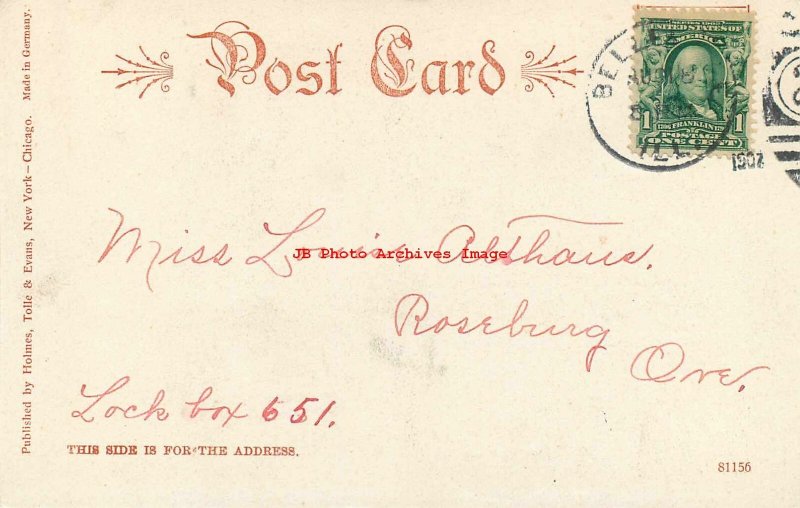 Post Card
Published by Holmes, Tolle & Evans, New York–Chicago. Made in Germany.
SERIES 1902
UNITED STATES OF
AMERICA
1 FRANKLIN 1
POSTAGE
ONE CENT
ILL
1907
Miss Louise Althaus.
JB Photo Archives Image
Roseburg
Ore.
Lock box 651.
THIS SIDE IS FOR THE ADDRESS.
81156